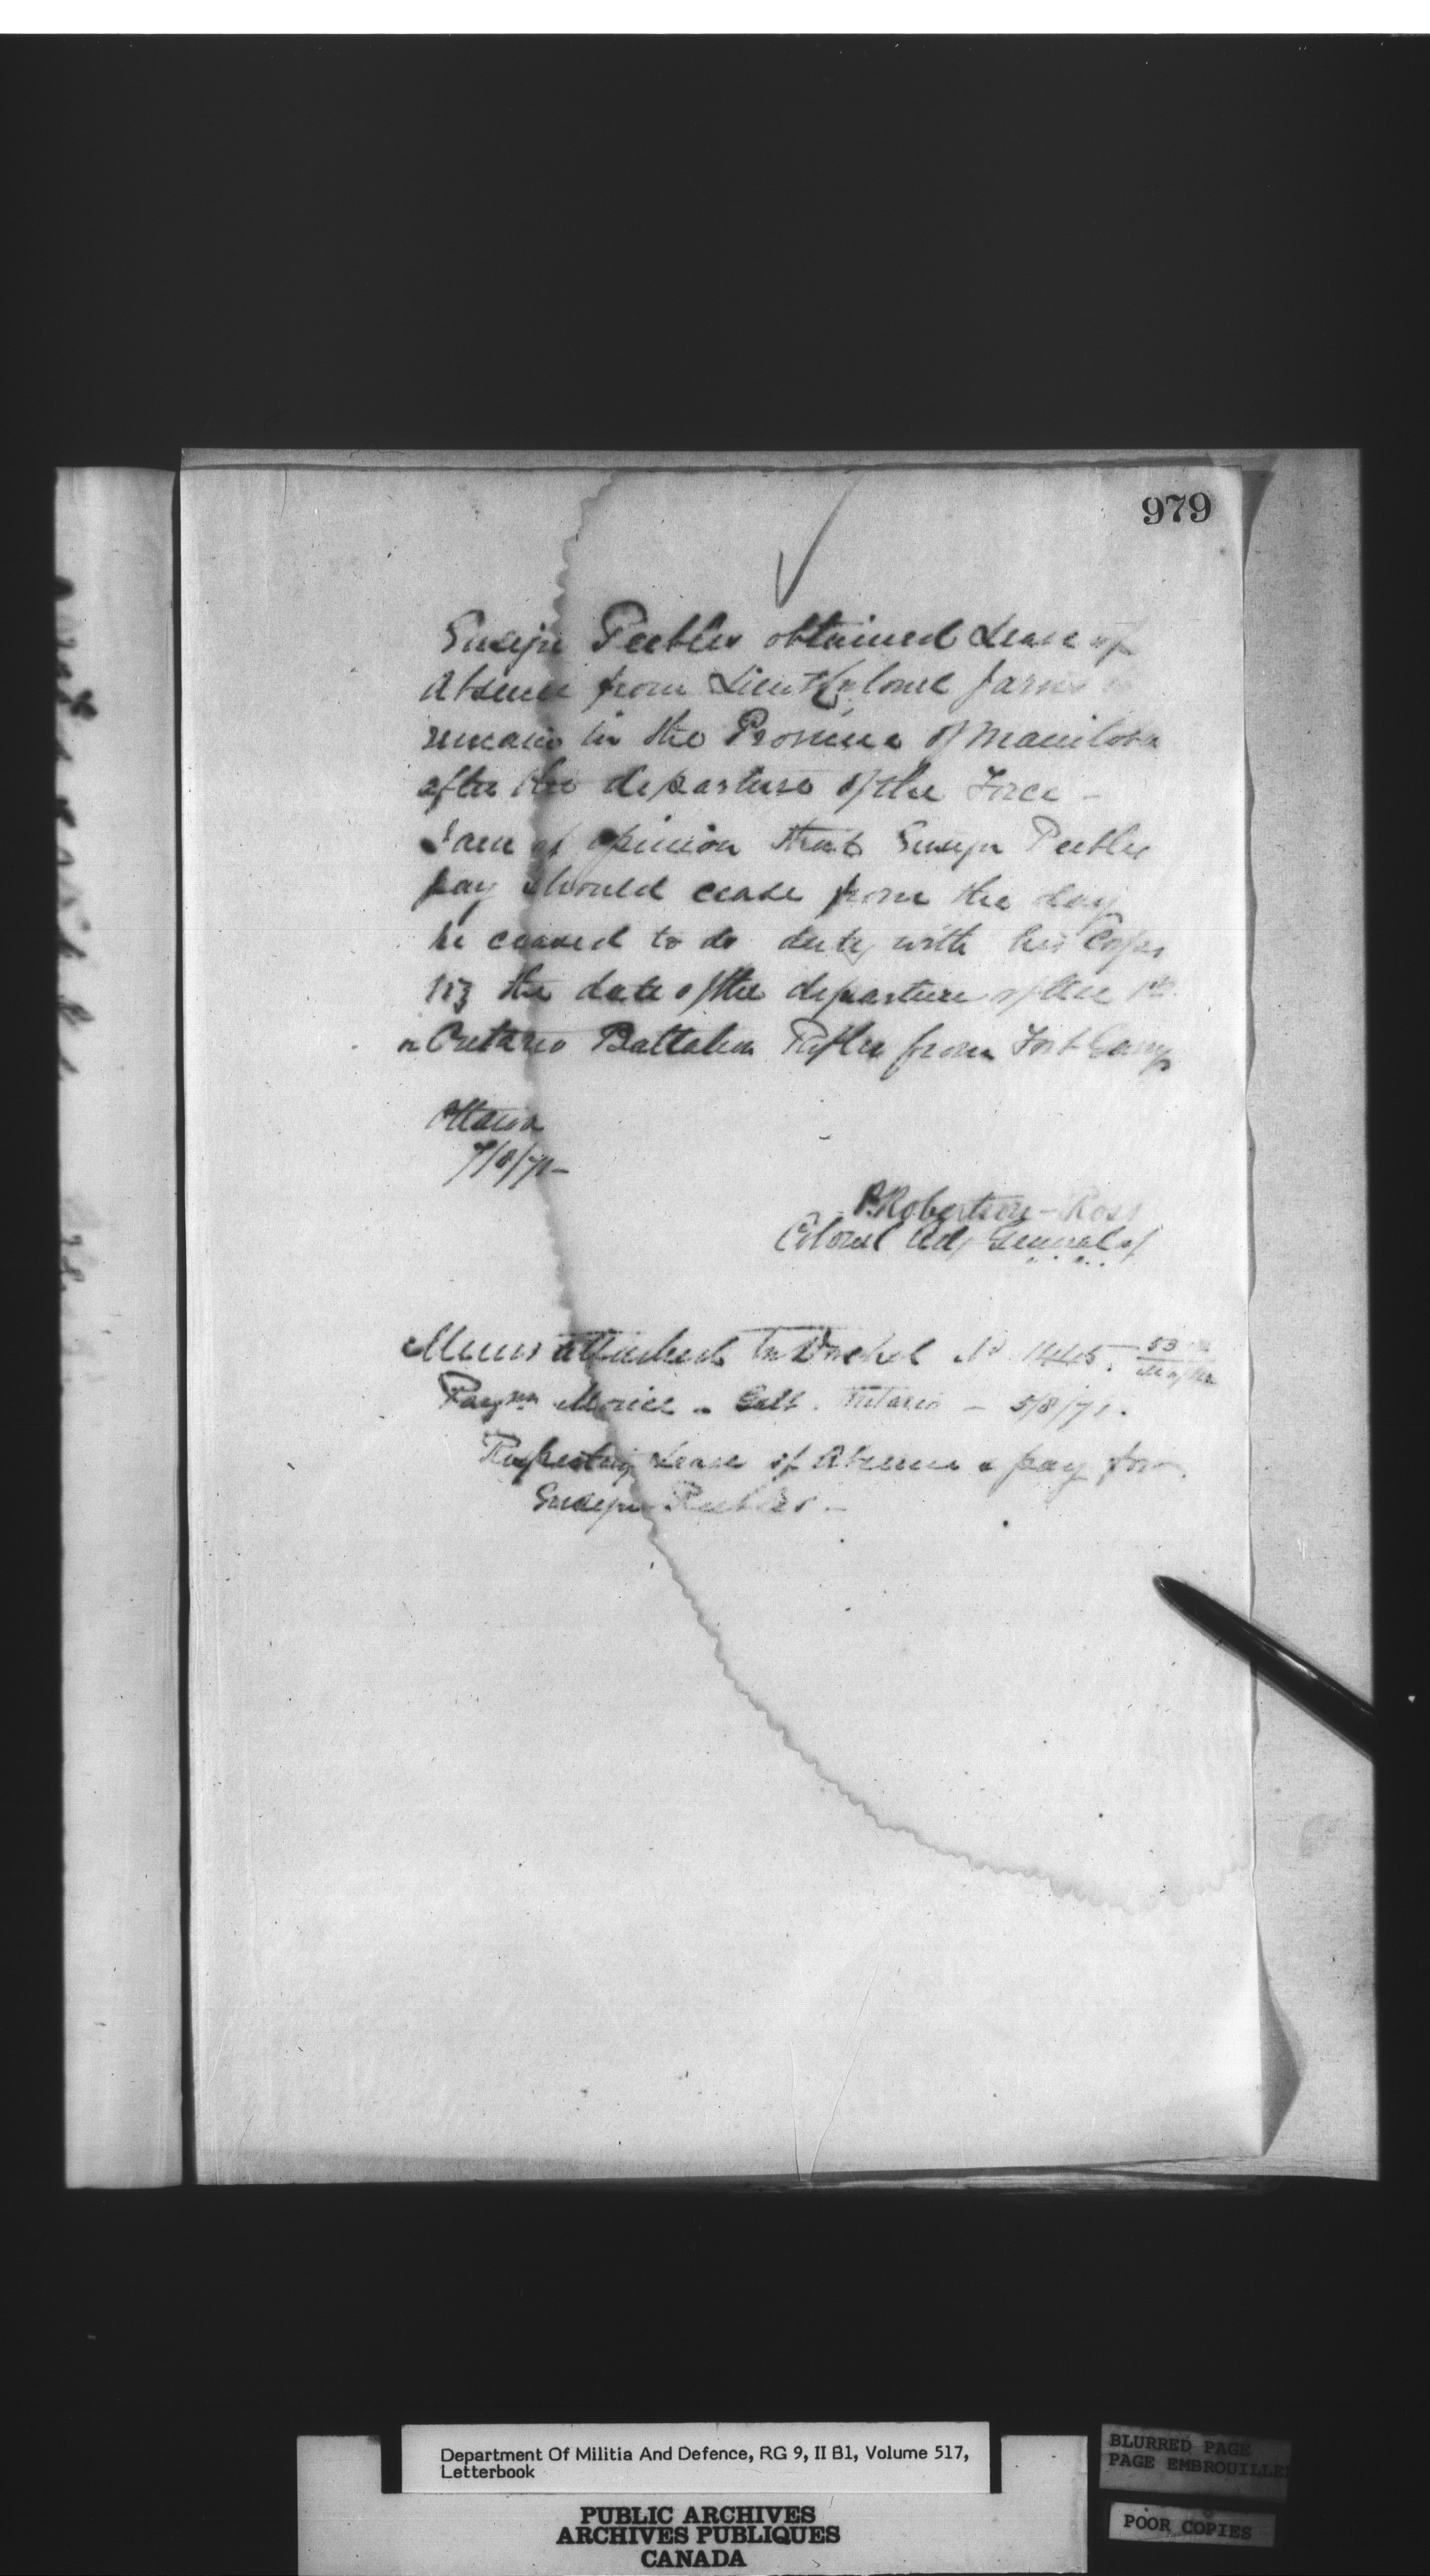 979
Ensign Peebles obtained Leave of
Absence from Lieut Colonel Jarvis
remain in the Province of Manitoba
after the departure of the Force -
I am of opinion that Ensign Peebles
pay should cease from the day
he ceased to do duty with his Corps
viz the date of the departure of the 1st
or Ontario Battalion Rifles from Fort Garry
Ottawa
7/8/71-
P. Robertson-Ross
Colonel Adj General of
Memo attached to Docket No 1445.
Paymr Morice - Galt. Ontario - 5/8/71.
Respecting Leave of Absence & pay for
Ensign Peebles. -
Department Of Militia And Defence, RG 9, II B1, Volume 517,
Letterbook
PUBLIC ARCHIVES
ARCHIVES PUBLIQUES
CANADA
BLURRED PAGE
PAGE EMBROUILLE
POOR COPIES